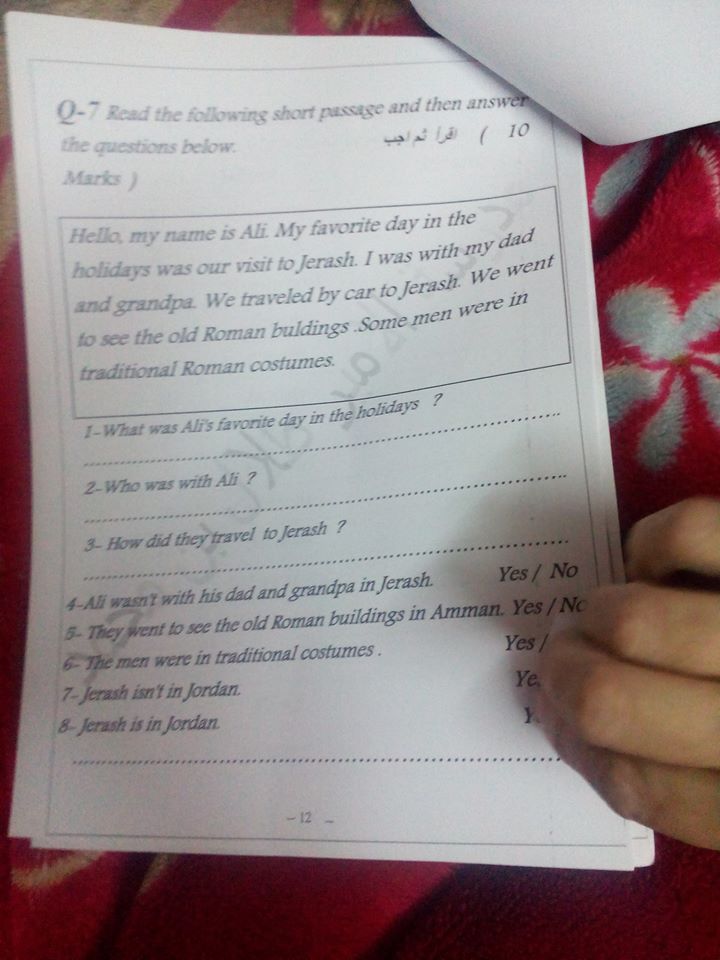 Q-7 Read the following short passage and then answer
the questions below. اقرأ ثم اجب ( 10
Marks )
Hello, my name is Ali. My favorite day in the
holidays was our visit to Jerash. I was with my dad
and grandpa. We traveled by car to Jerash. We went
to see the old Roman buldings .Some men were in
traditional Roman costumes.
1-What was Ali's favorite day in the holidays ?
2-Who was with Ali ?
3- How did they travel to Jerash ?
4-Ali wasn't with his dad and grandpa in Jerash. Yes / No
5- They went to see the old Roman buildings in Amman. Yes / No
6- The men were in traditional costumes . Yes /
7- Jerash isn't in Jordan.
8- Jerash is in Jordan.
- 12 -